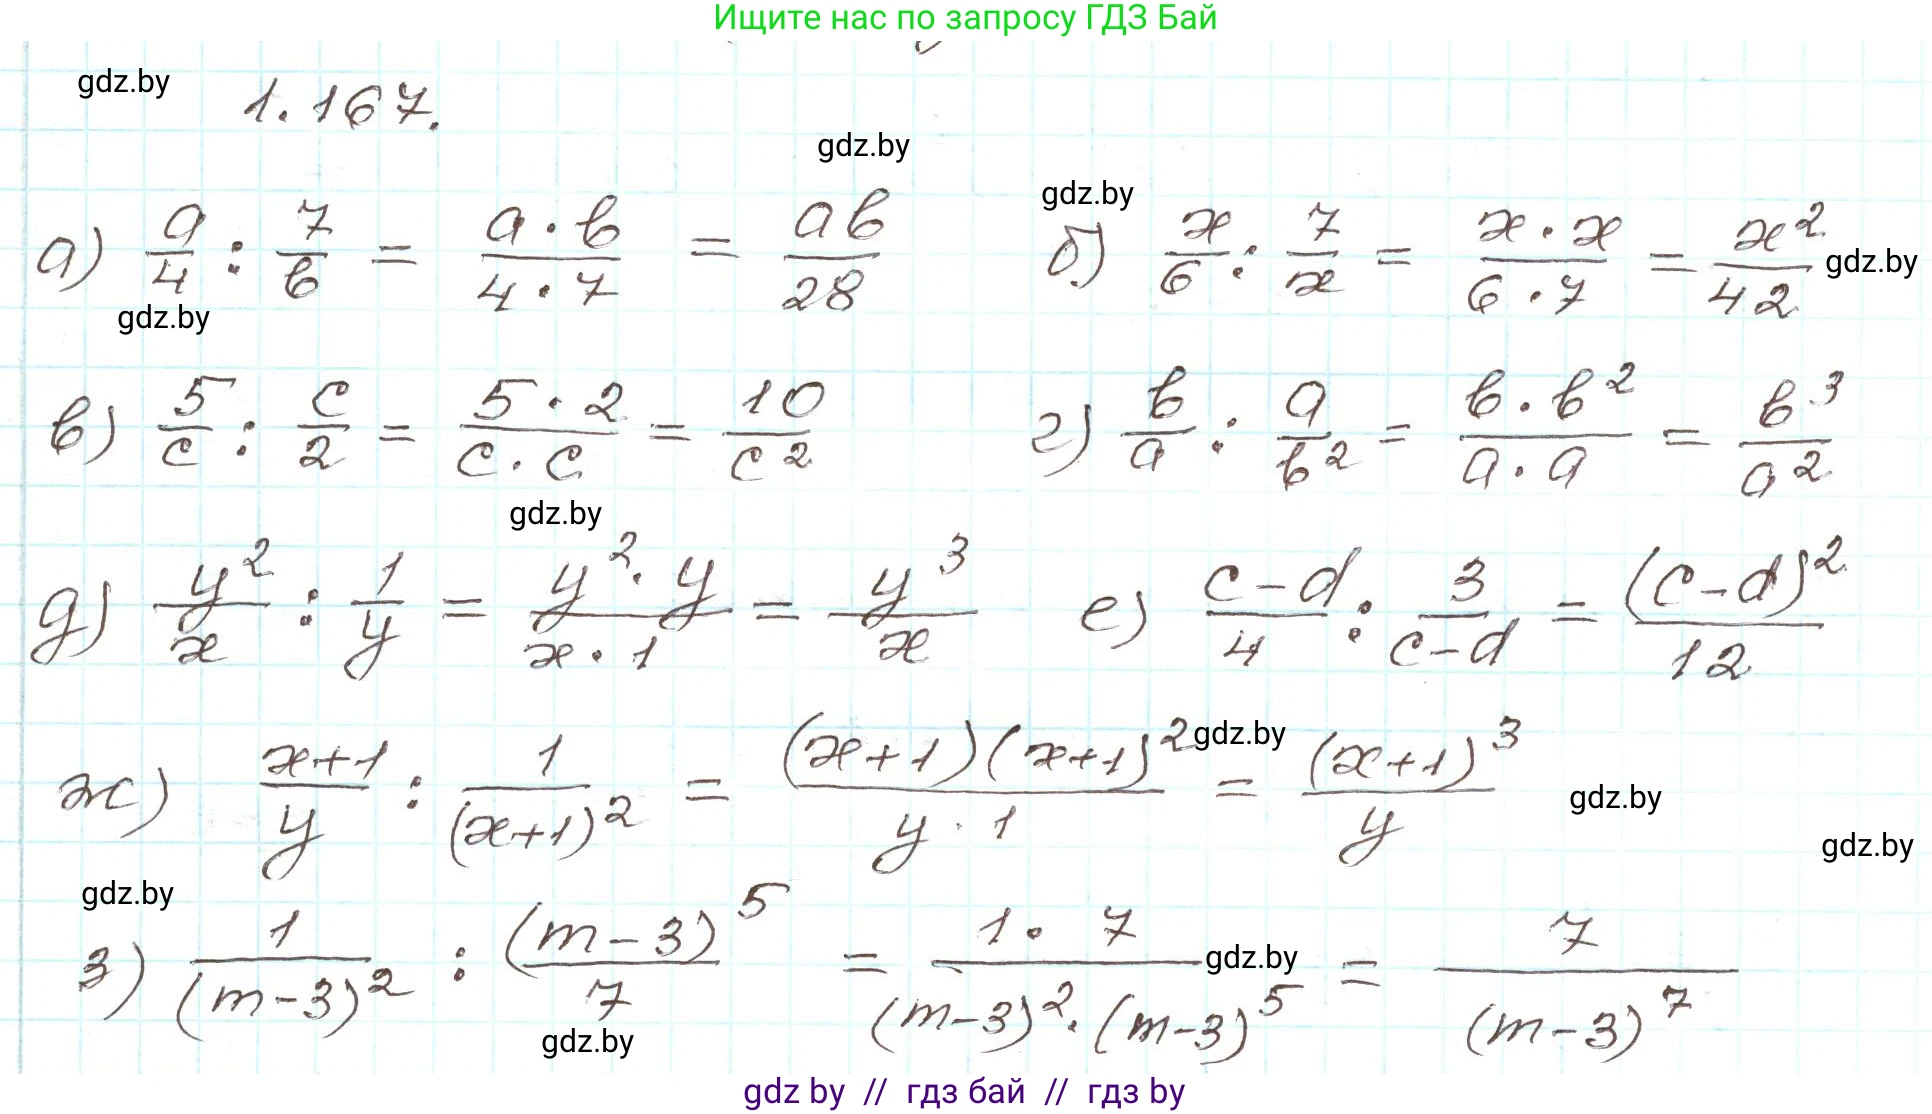 Ищите нас по запросу ГДЗ Бай
gdz.by
1.167.
gdz.by
gdz.by
а) a/4 : 7/b = a·b/4·7 = ab/28
б) x/6 : 7/x = x·x/6·7 = x²/42
gdz.by
gdz.by
в) 5/c : c/2 = 5·2/c·c = 10/c²
г) b/a : a/b² = b·b²/a·a = b³/a²
gdz.by
д) y²/x : 1/y = y²·y/x·1 = y³/x
е) c-d/4 : 3/c-d = (c-d)²/12
gdz.by
ж) x+1/y : 1/(x+1)² = (x+1)(x+1)²/y·1 = (x+1)³/y
gdz.by
gdz.by
gdz.by
з) 1/(m-3)² : (m-3)⁵/7 = 1·7/(m-3)²·(m-3)⁵ = 7/(m-3)⁷
gdz.by
gdz.by
gdz by // гдз бай // гдз by